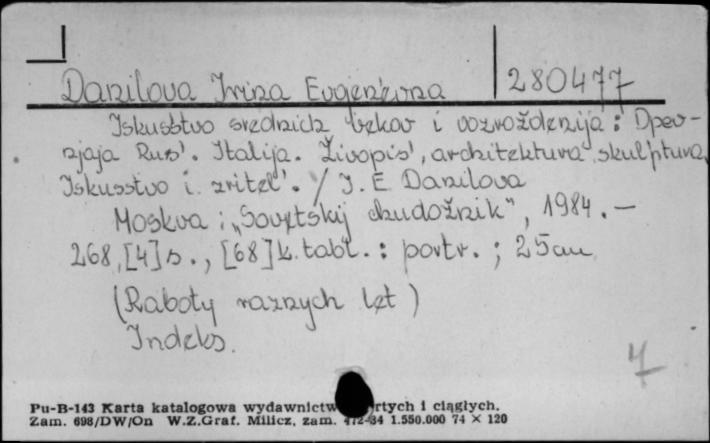 Danilova Irina Evgen'evna 280477
Iskusstvo srednich vekov i vozroždenija : Drev-
njaja Rus'. Italija. Živopis', architektura, skul'ptura,
Iskusstvo i zritel'. / I. E Danilova
Moskva : „Sovetskij chudožnik", 1984. —
268, [4] s., [68] k. tabl. : portr. ; 25 cm
(Raboty raznych let)
Indeks.
4
Pu-B-143 Karta katalogowa wydawnictw rtych i ciągłych.
Zam. 698/DW/On W.Z.Graf. Milicz, zam. 472-84 1.550.000 74 × 120